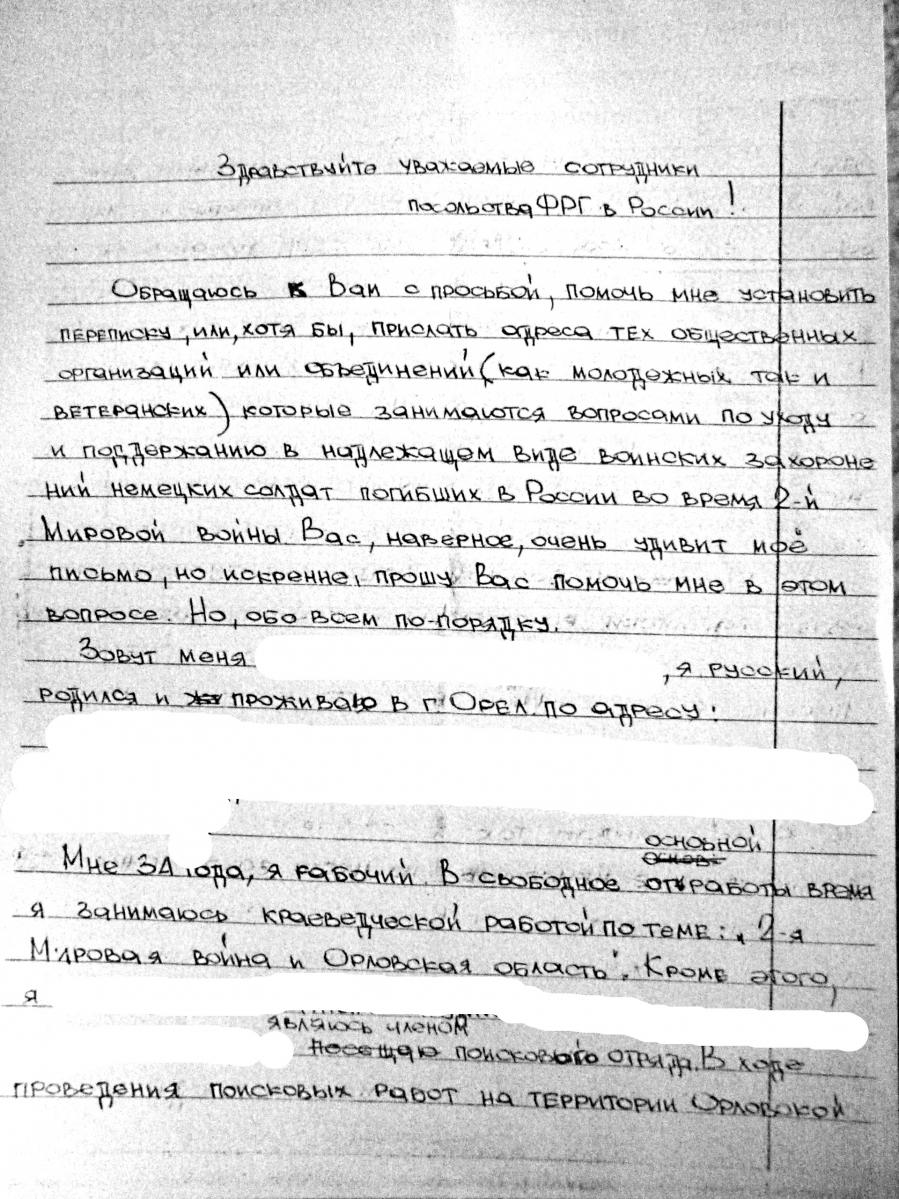 Здравствуйте уважаемые сотрудники
посольства ФРГ в России!
Обращаюсь к Вам с просьбой, помочь мне установить
переписку, или, хотя бы, прислать адреса тех общественных
организаций или объединений (как молодежных так и
ветеранских) которые занимаются вопросами по уходу
и поддержанию в надлежащем виде воинских захороне
ний немецких солдат погибших в России во время 2-й
Мировой войны Вас, наверное, очень удивит моё
письмо, но искренне, прошу Вас помочь мне в этом
вопросе. Но, обо всем по-порядку.
Зовут меня , я русский,
родился и проживаю в г. Орел по адресу:
основной
Мне 34 года, я рабочий. В свободное от работы время
я занимаюсь краеведческой работой по теме: „2-я
Мировая война и Орловская область". Кроме этого,
я
являюсь членом
посещаю поискового отряда. В ходе
проведения поисковых работ на территории Орловской